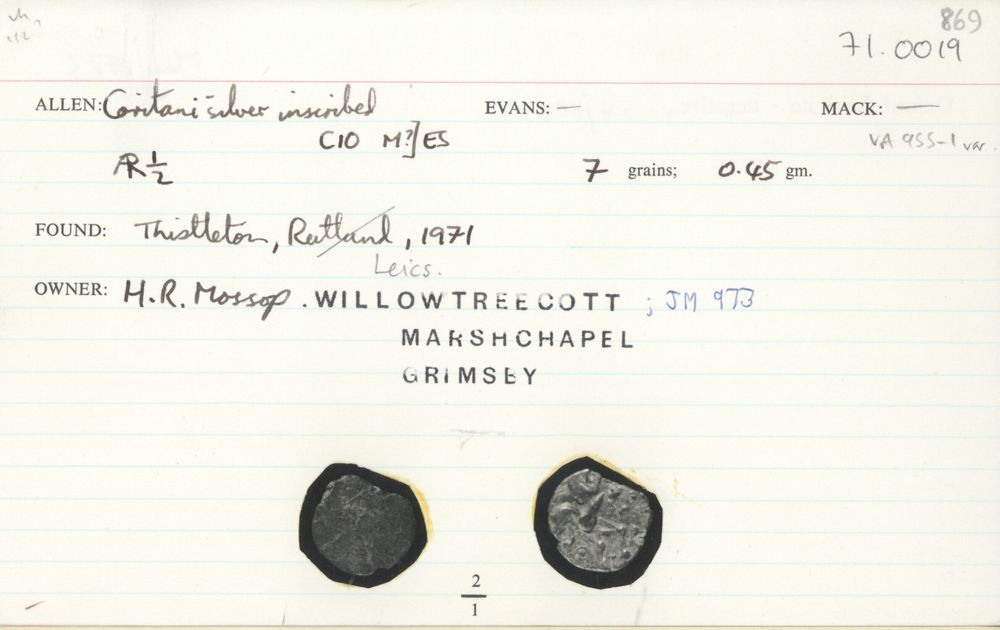 869
71.0019
ALLEN: Coritani silver inscribed EVANS: — MACK: —
CIO M?]ES VA 955-1 var.
AR 1/2 7 grains; 0.45 gm.
FOUND: Thistleton, Rutland, 1971
Leics.
OWNER: H.R. Mossop. WILLOWTREE COTT ; JM 973
MARSHCHAPEL
GRIMSBY
2
1